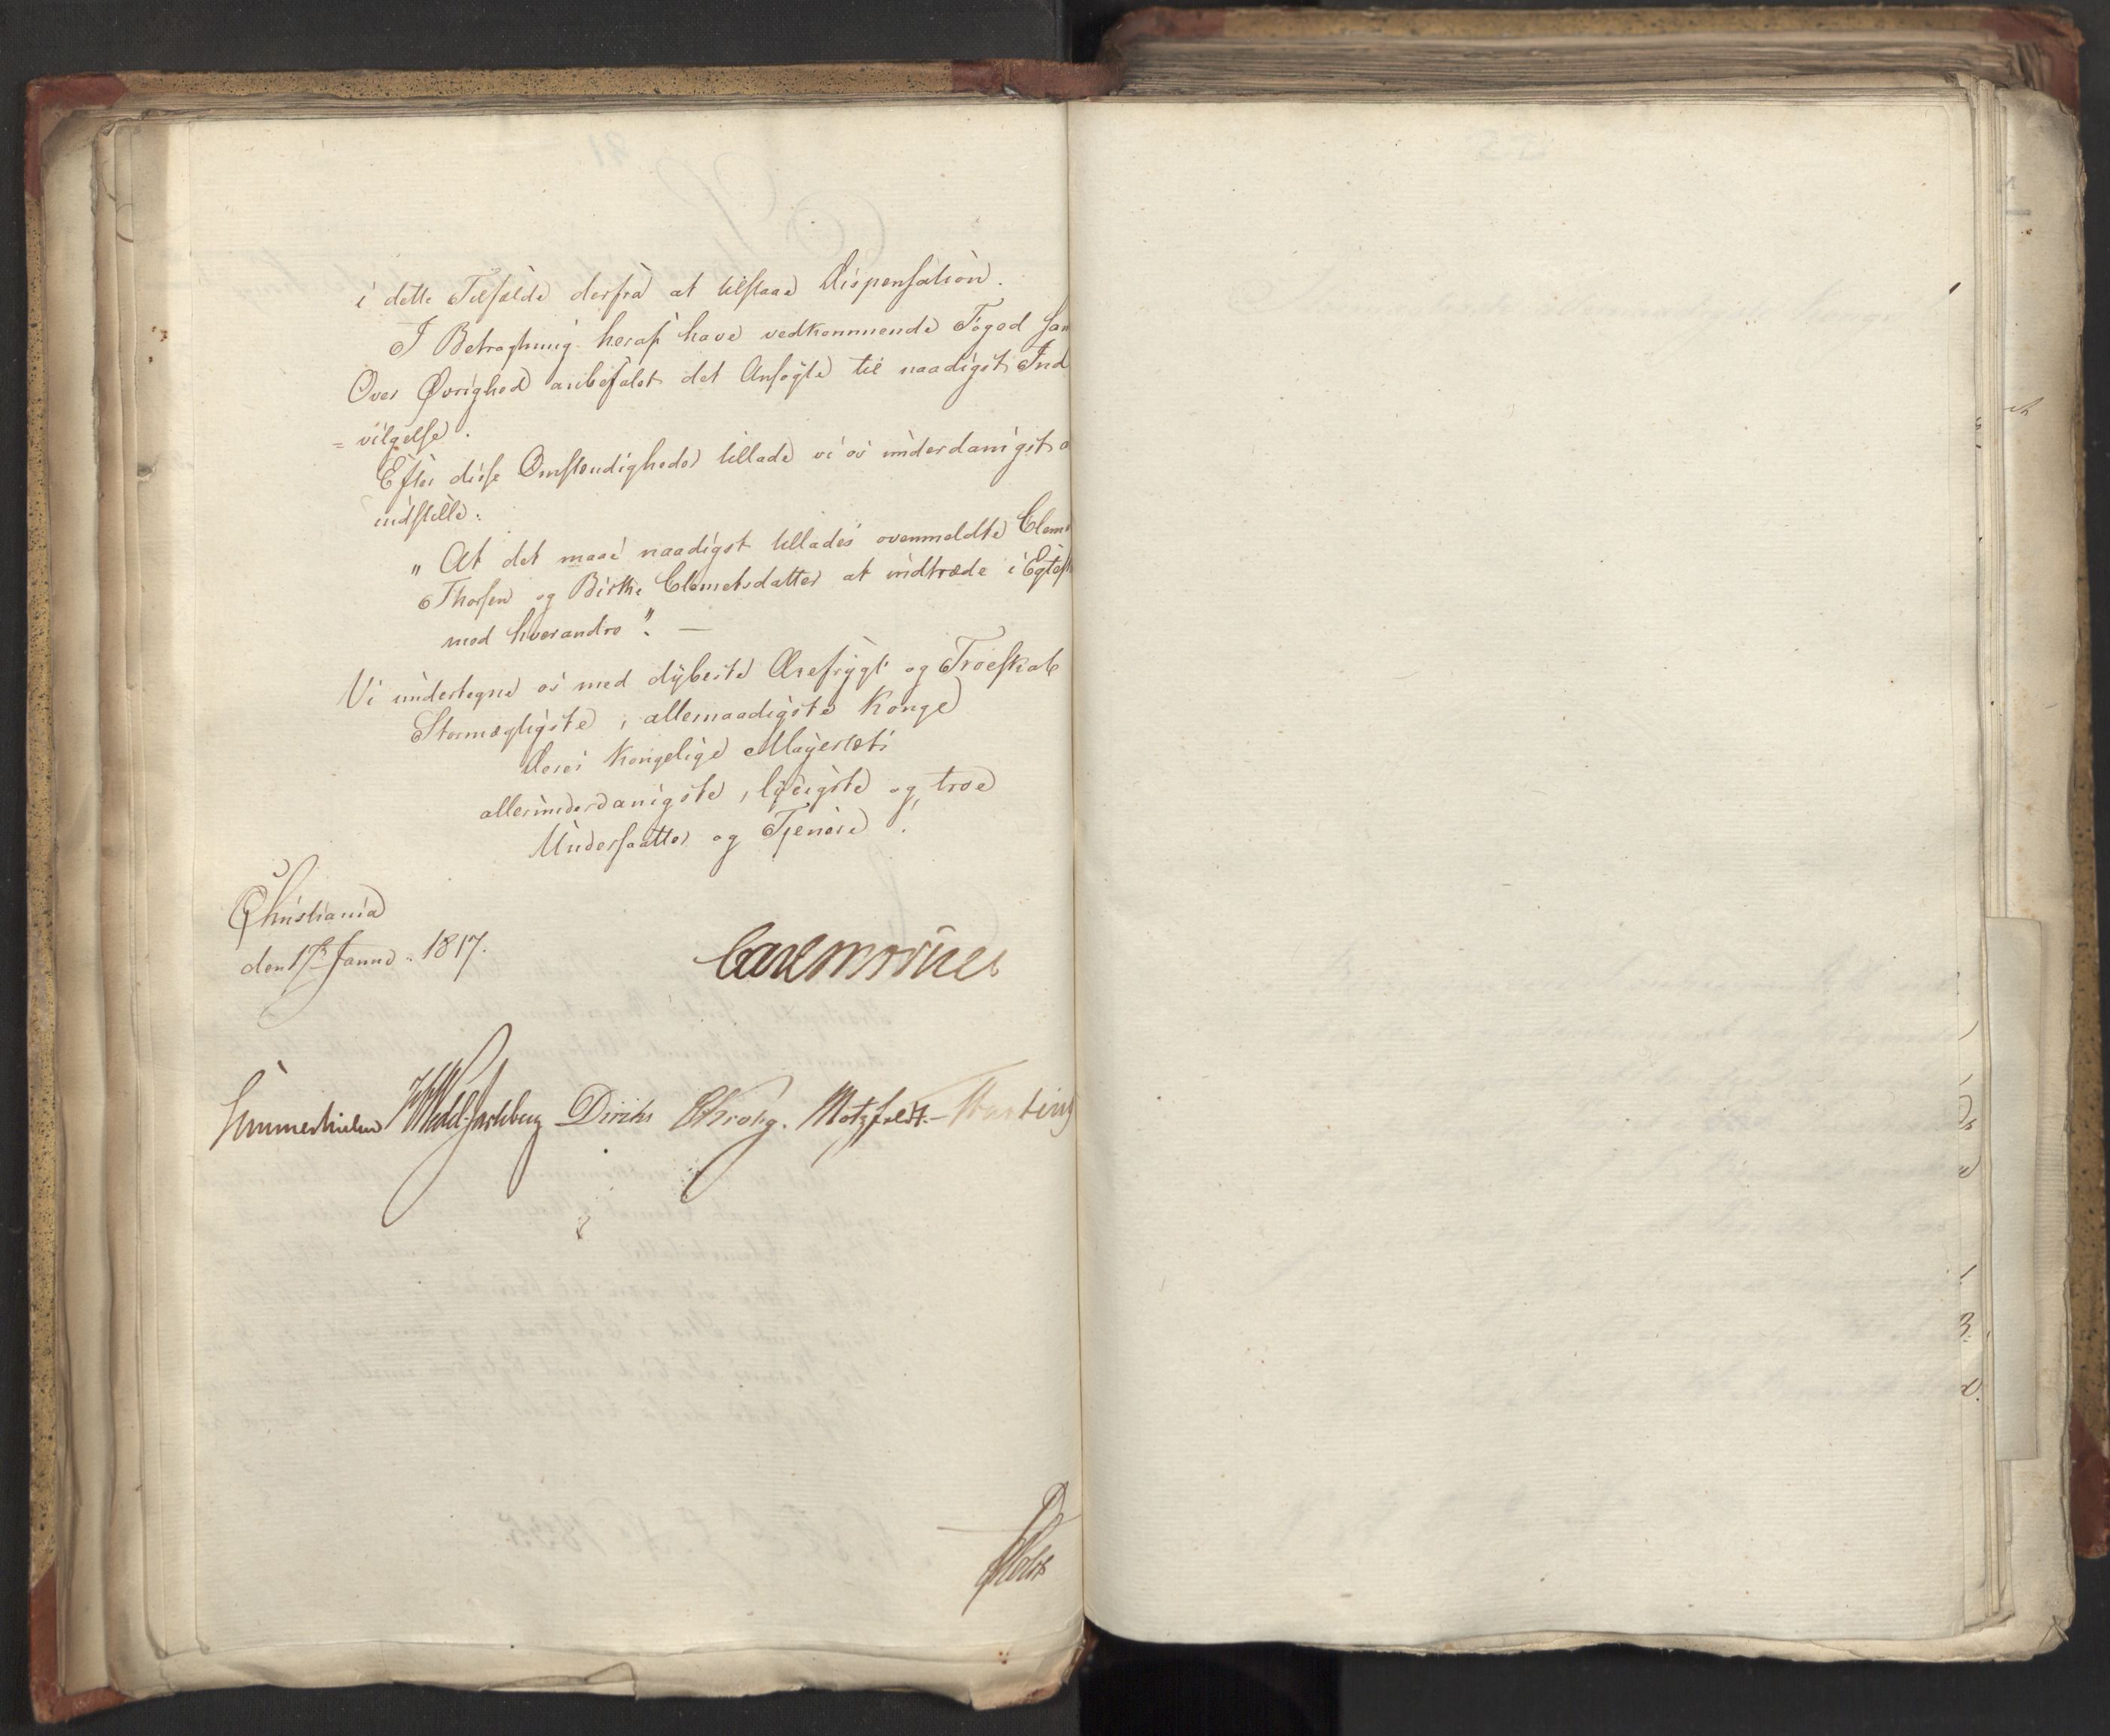 i dette Tilfælde derfra at tilstaae Dispensation.
I Betragtning heraf have vedkommende Foged sam
Over Øvrighed anbefalet det Ansøgte til naadigst Ind
= vilgelse.
Efter disse Omstændigheder tillade vi os underdanigst a
indstille:
„ At det maae naadigst tillades ovenmeldte Cleme
Thorsen og Birthe Clemetsdatter at indtræde i Egtesk
med hverandre". —
Vi undertegne os med dybeste Ærefrygt og Troeskab
Stormægtigste, allernaadigste Konge
Deres Kongelige Majestæts
allerunderdanigste, lydigste og troe
Undersaatter og Tjenere.
Christiania
den 17de Janu: 1817.
Carl Mörner
Sommerhielm HWedel Jarlsberg Diriks CKrohg. Motzfeldt.
Holst